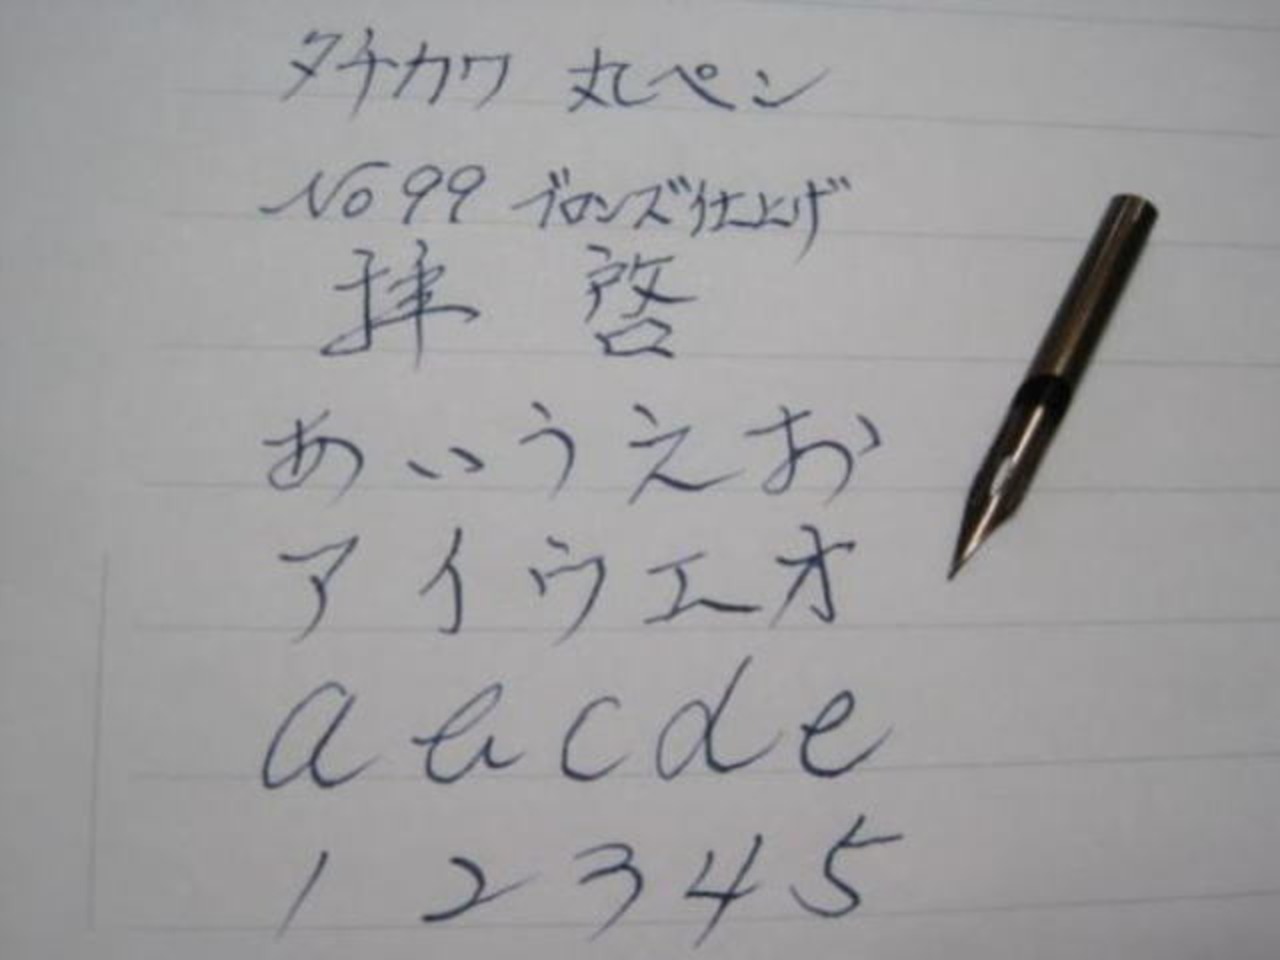 タチカワ 丸ペン
No 99 ブロンズ仕上げ
拝 啓
あ い う え お
ア イ ウ エ オ
a b c d e
1 2 3 4 5